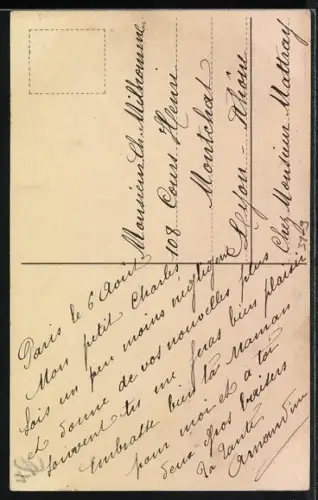 Monsieur Ch. Milhomme
108 Cours Henri
Montchat
Lyon - Rhône
Chez Monsieur Mattray
Paris le 6 Août
Mon petit Charles
Sois un peu moins négligent
et donne de vos nouvelles plus
souvent tu me feras bien plaisir
Embrasse bien ta Maman
pour moi et a toi
deux gros baisers
Ta tante